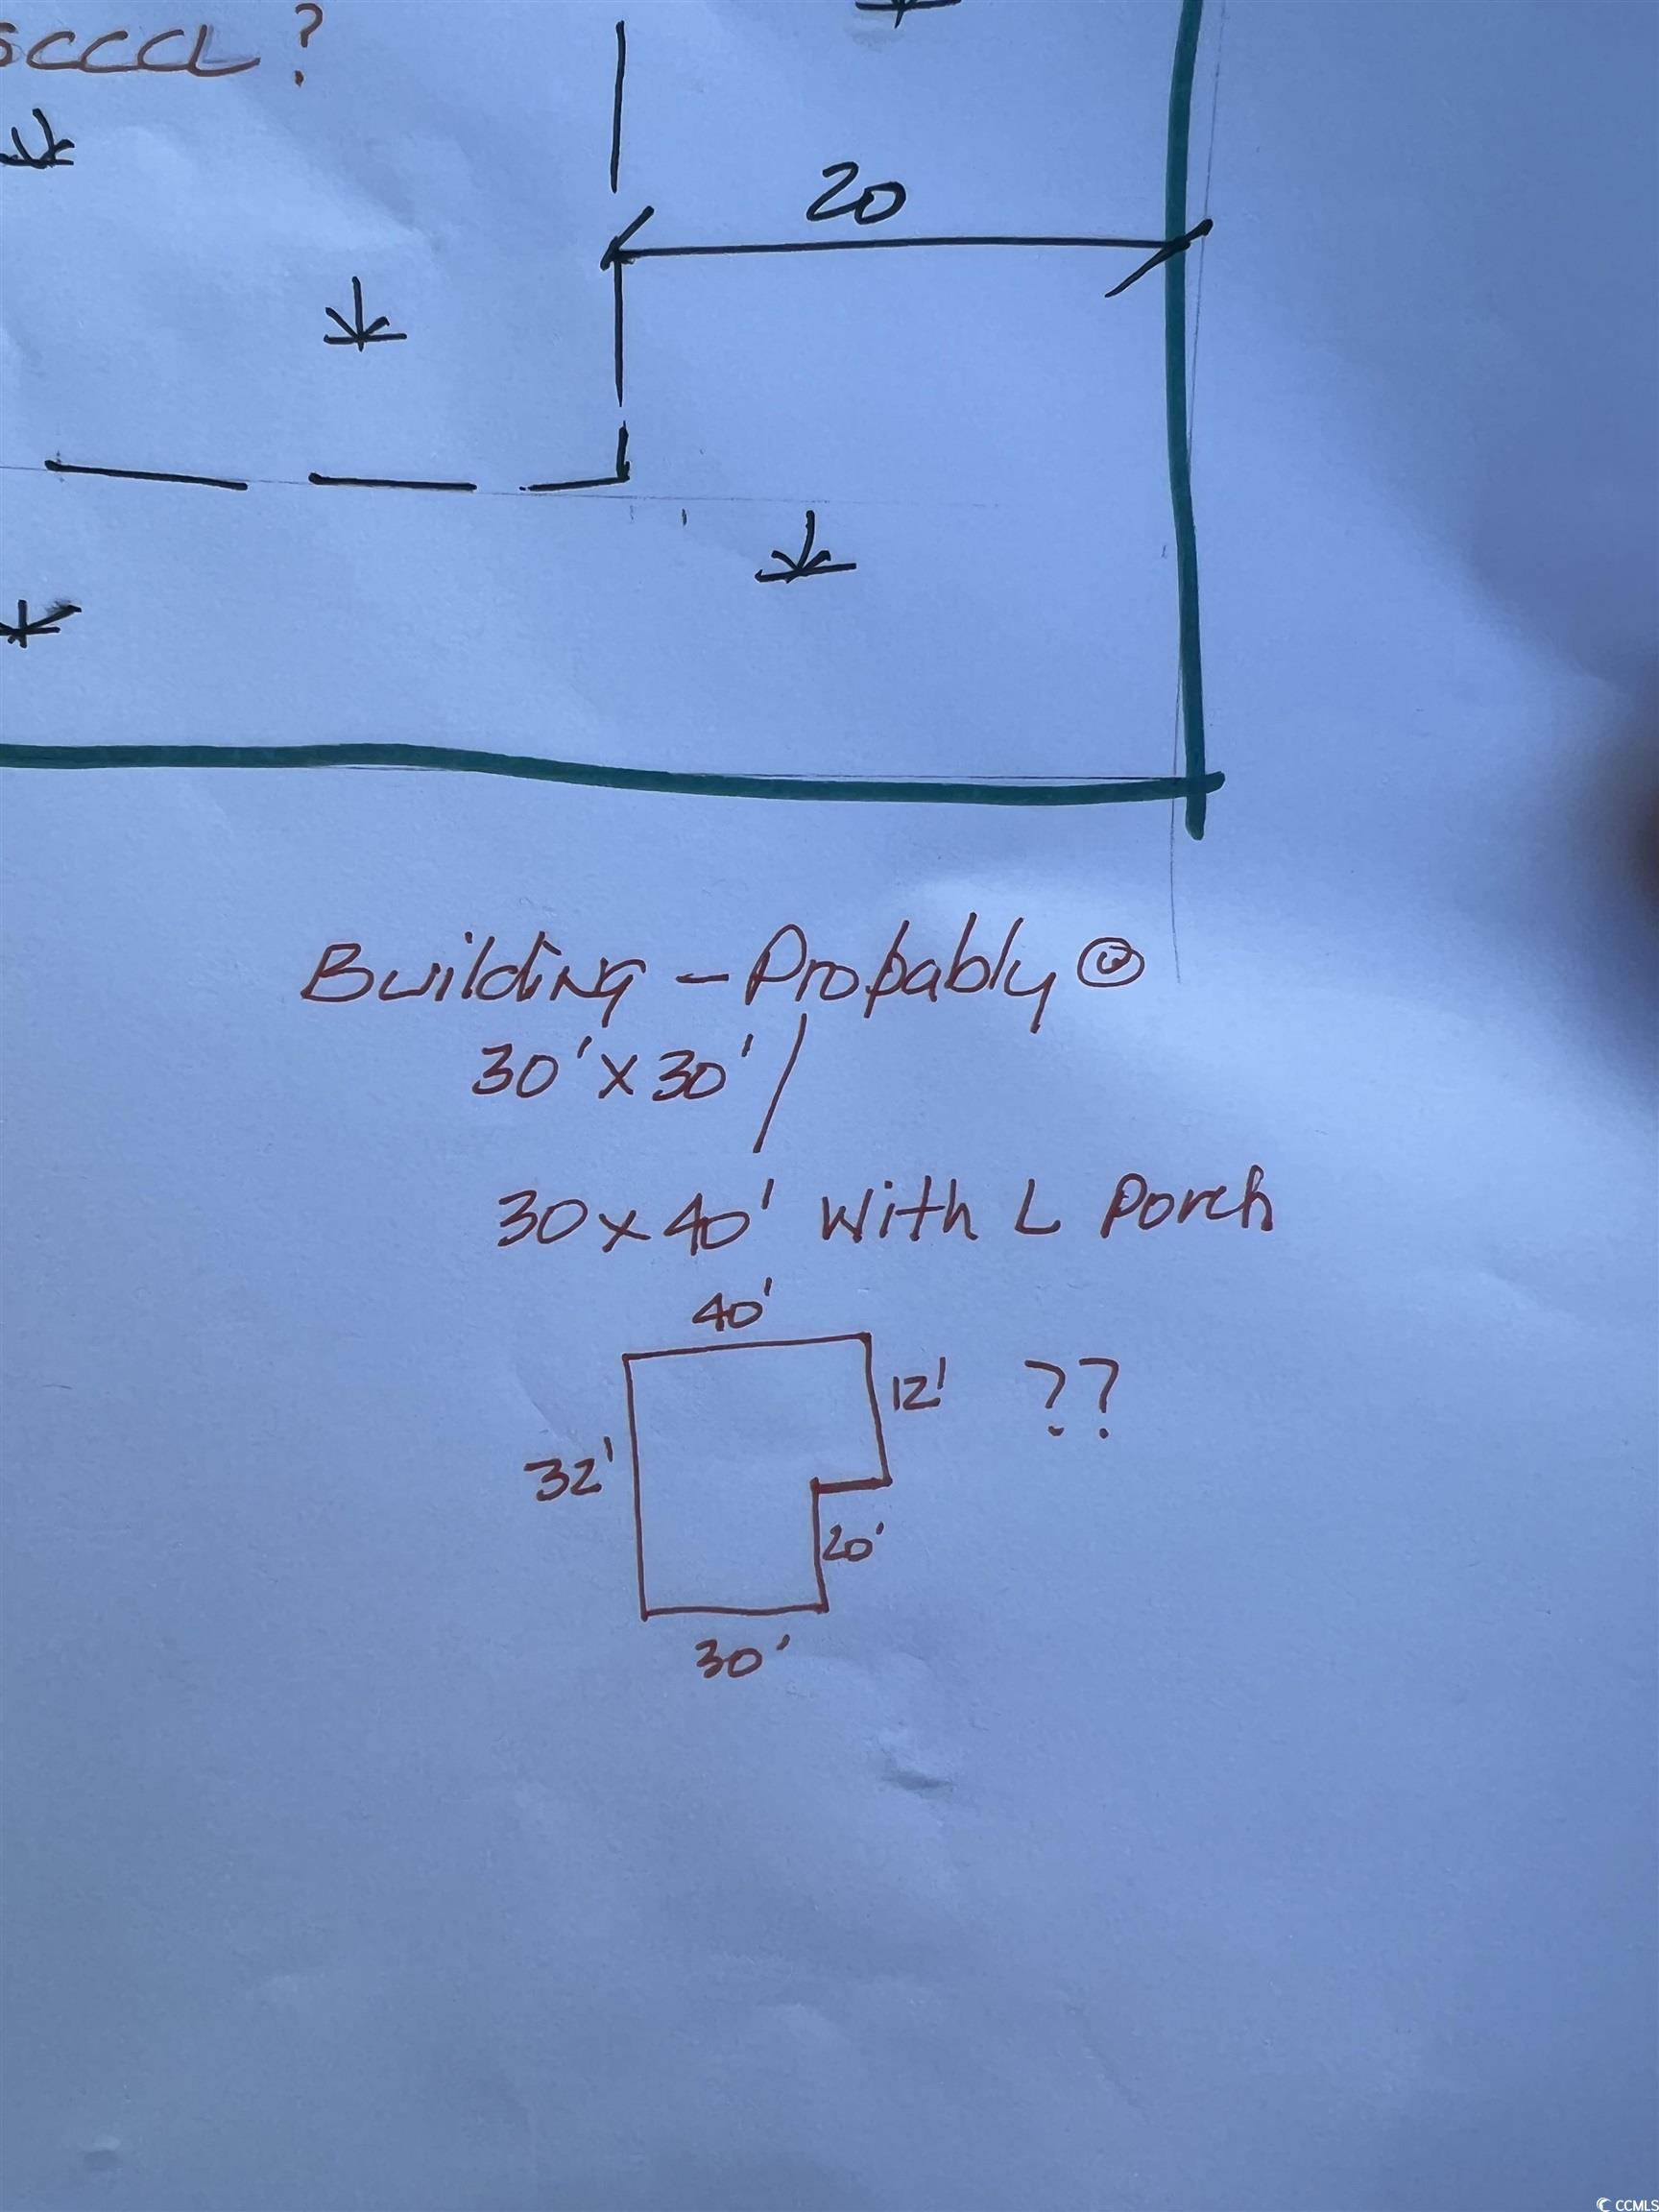 SCCCL ?
20
Building - Probably
30' x 30' /
30 x 40' with L Porch
40'
12' ??
32'
20'
30'
CCMLS